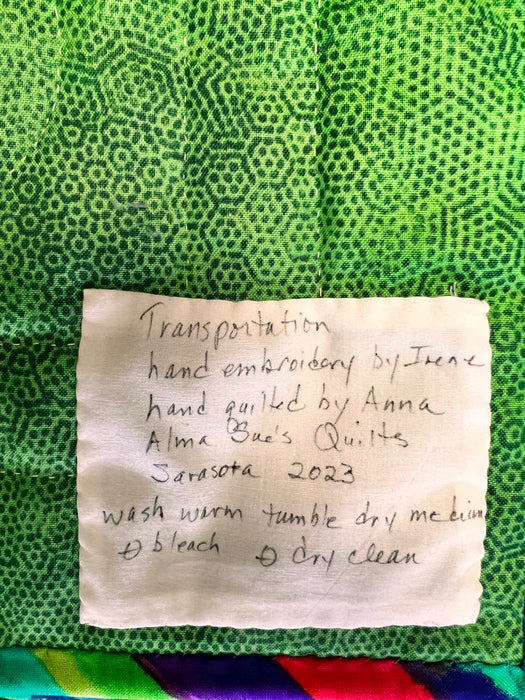 Transportation
hand embroidery by Irene
hand quilted by Anna
Alma Sue's Quilts
Sarasota 2023
wash warm tumble dry medium
∅ bleach ∅ dry clean